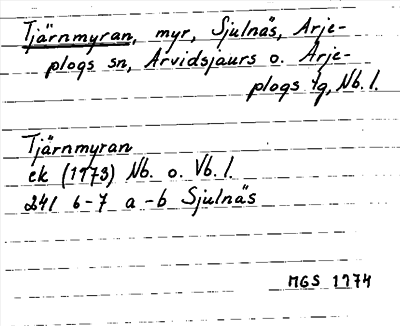 Tjärnmyran, myr, Sjulnäs, Arje-
plogs sn, Arvidsjaurs o. Arje-
plogs tg, Nb. l.
Tjärnmyran
ek (1973) Nb. o. Vb. l.
241 6-7 a-b Sjulnäs
MGS 1974